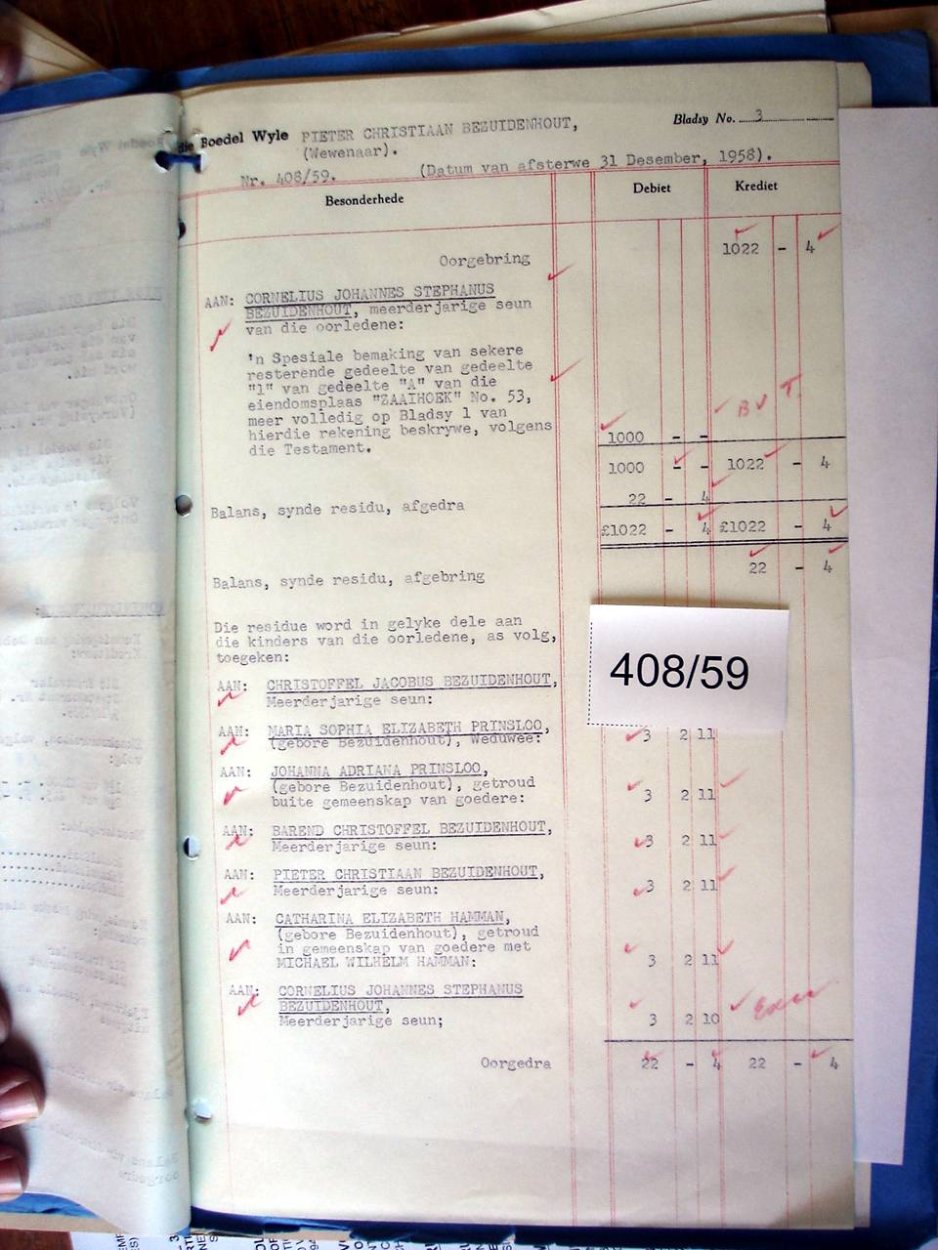 die Boedel Wyle PIETER CHRISTIAAN BEZUIDENHOUT, Bladsy No. 3
(Wewenaar).
Nr. 408/59. (Datum van afsterwe 31 Desember, 1958).
Besonderhede Debiet Krediet
Oorgebring 1022 - 4
AAN: CORNELIUS JOHANNES STEPHANUS
BEZUIDENHOUT, meerderjarige seun
van die oorledene:
'n Spesiale bemaking van sekere
resterende gedeelte van gedeelte
"1" van gedeelte "A" van die
eiendomsplaas "ZAAIHOEK" No. 53,
meer volledig op Bladsy 1 van
hierdie rekening beskrywe, volgens
die Testament. 1000 - -
B V T.
1000 - - 1022 - 4
Balans, synde residu, afgedra 22 - 4
£1022 - 4 £1022 - 4
Balans, synde residu, afgebring 22 - 4
Die residue word in gelyke dele aan
die kinders van die oorledene, as volg,
toegeken:
408/59
AAN: CHRISTOFFEL JACOBUS BEZUIDENHOUT,
Meerderjarige seun:
AAN: MARIA SOPHIA ELIZABETH PRINSLOO,
(gebore Bezuidenhout), Weduwee: 3 2 11
AAN: JOHANNA ADRIANA PRINSLOO,
(gebore Bezuidenhout), getroud
buite gemeenskap van goedere: 3 2 11
AAN: BAREND CHRISTOFFEL BEZUIDENHOUT,
Meerderjarige seun: 3 2 11
AAN: PIETER CHRISTIAAN BEZUIDENHOUT,
Meerderjarige seun: 3 2 11
AAN: CATHARINA ELIZABETH HAMMAN,
(gebore Bezuidenhout), getroud
in gemeenskap van goedere met
MICHAEL WILHELM HAMMAN: 3 2 11
AAN: CORNELIUS JOHANNES STEPHANUS
BEZUIDENHOUT,
Meerderjarige seun; 3 2 10
Oorgedra 22 - 4 22 - 4